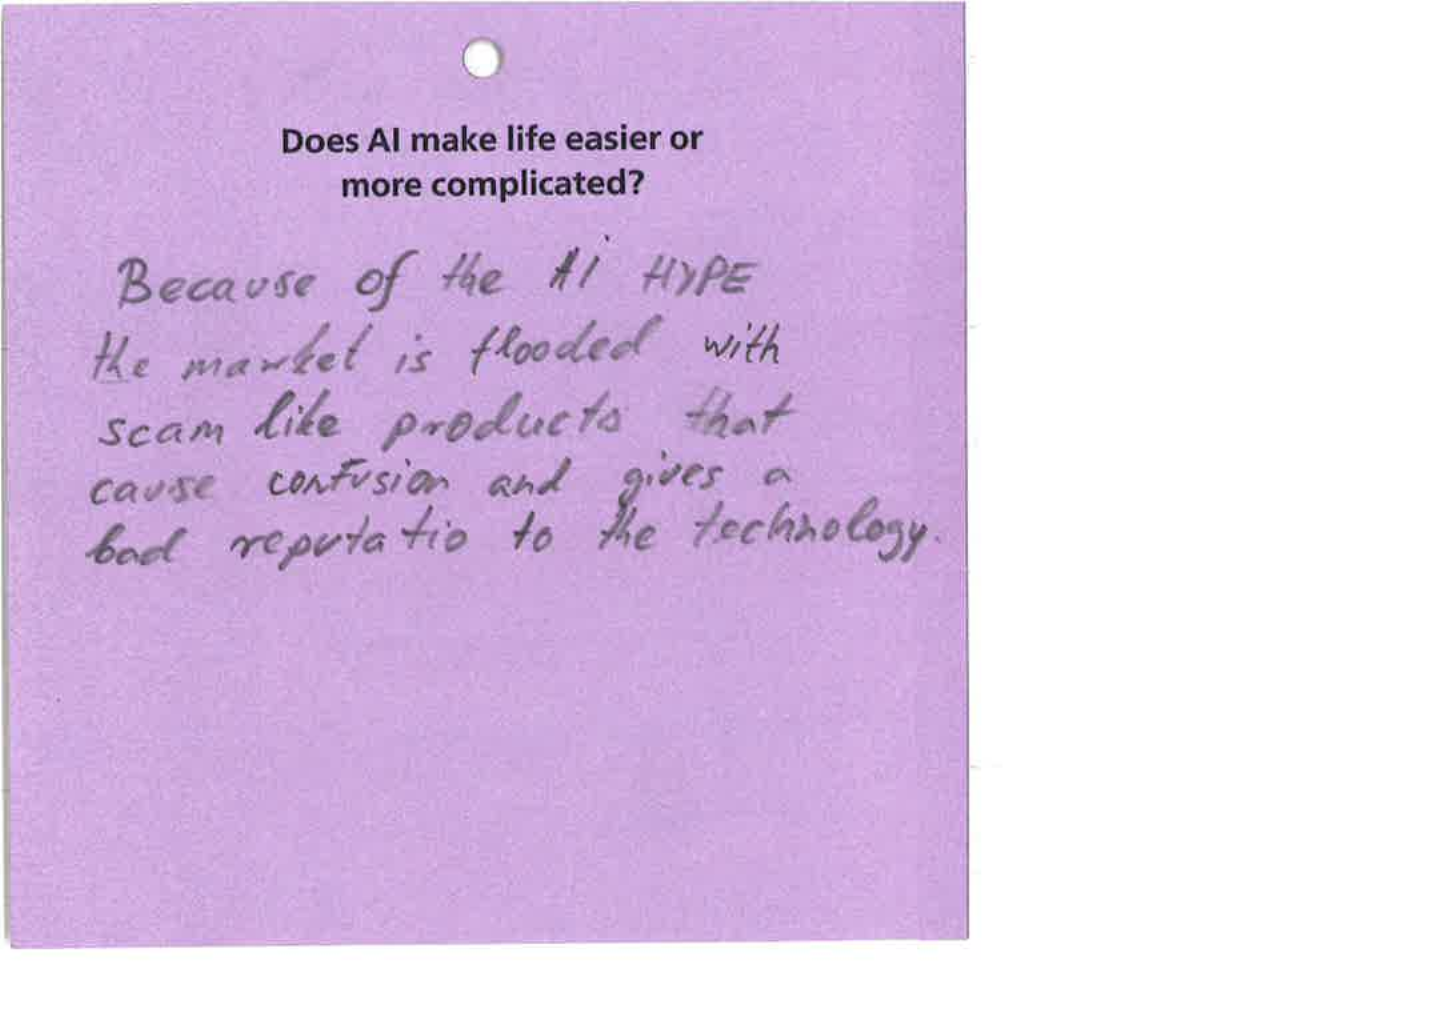 Does AI make life easier or
more complicated?
Because of the Ai HYPE
the market is flooded with
scam like products that
cause confusion and gives a
bad reputatio to the technology.